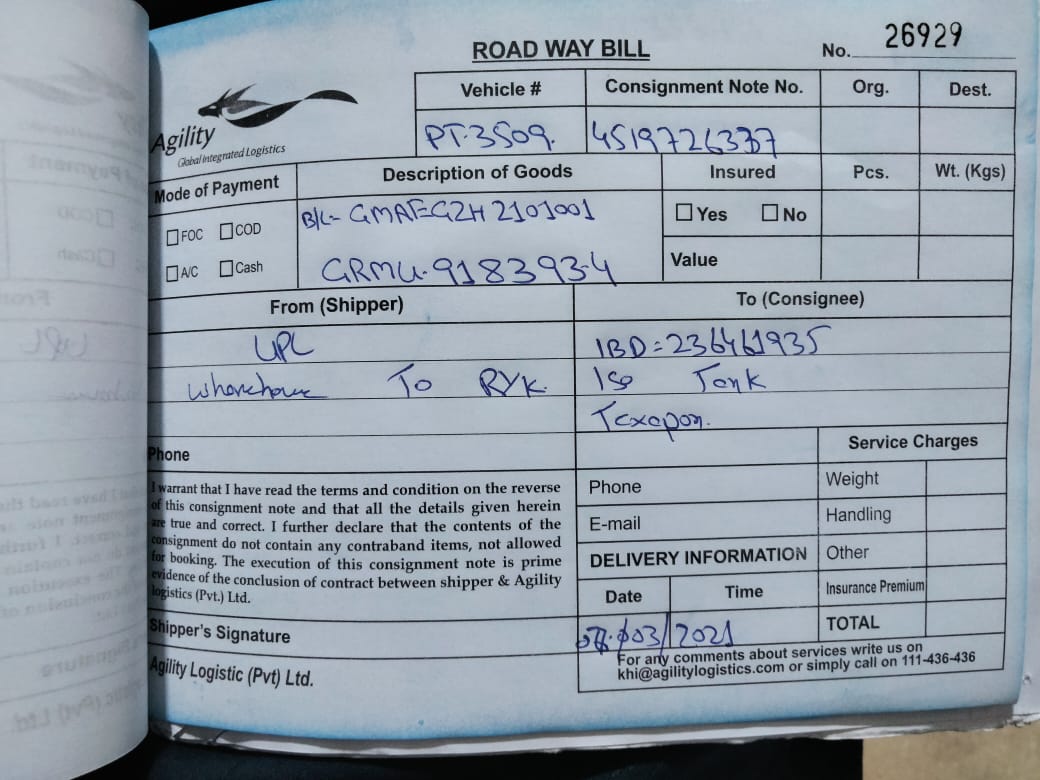 ROAD WAY BILL
No. 26929
Agility
Global Integrated Logistics
Vehicle #
Consignment Note No.
Org.
Dest.
PT-3509.
4519726337
Mode of Payment
Description of Goods
Insured
Pcs.
Wt. (Kgs)
FOC
COD
A/C
Cash
B/L- GMAFGZH2101001
GRMU-918393-4
Yes
No
Value
From (Shipper)
To (Consignee)
UPL
IBD = 236461935
To RYK.
Iso Tank
Texapon.
Phone
Service Charges
I warrant that I have read the terms and condition on the reverse
of this consignment note and that all the details given herein
are true and correct. I further declare that the contents of the
consignment do not contain any contraband items, not allowed
for booking. The execution of this consignment note is prime
evidence of the conclusion of contract between shipper & Agility
logistics (Pvt.) Ltd.
Phone
Weight
E-mail
Handling
DELIVERY INFORMATION
Other
Date
Time
Insurance Premium
TOTAL
03/2021
Shipper's Signature
Agility Logistic (Pvt) Ltd.
For any comments about services write us on
khi@agilitylogistics.com or simply call on 111-436-436